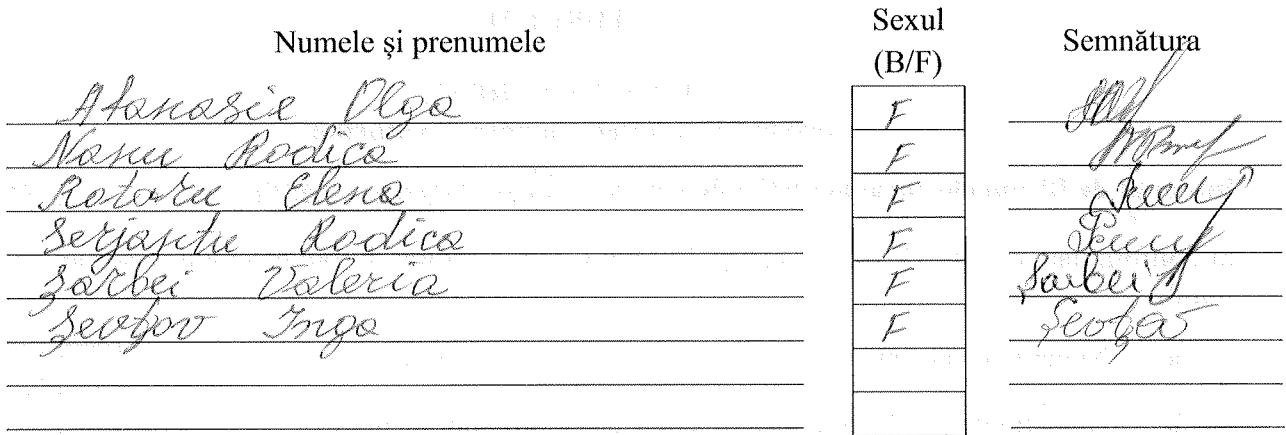 Numele şi prenumele Sexul (B/F) Semnătura
Atanasie Olga F
Nanu Rodica F
Rotaru Elena F
Serjantu Rodica F
Şarbei Valeria F Şarbei
Şevţov Inga F